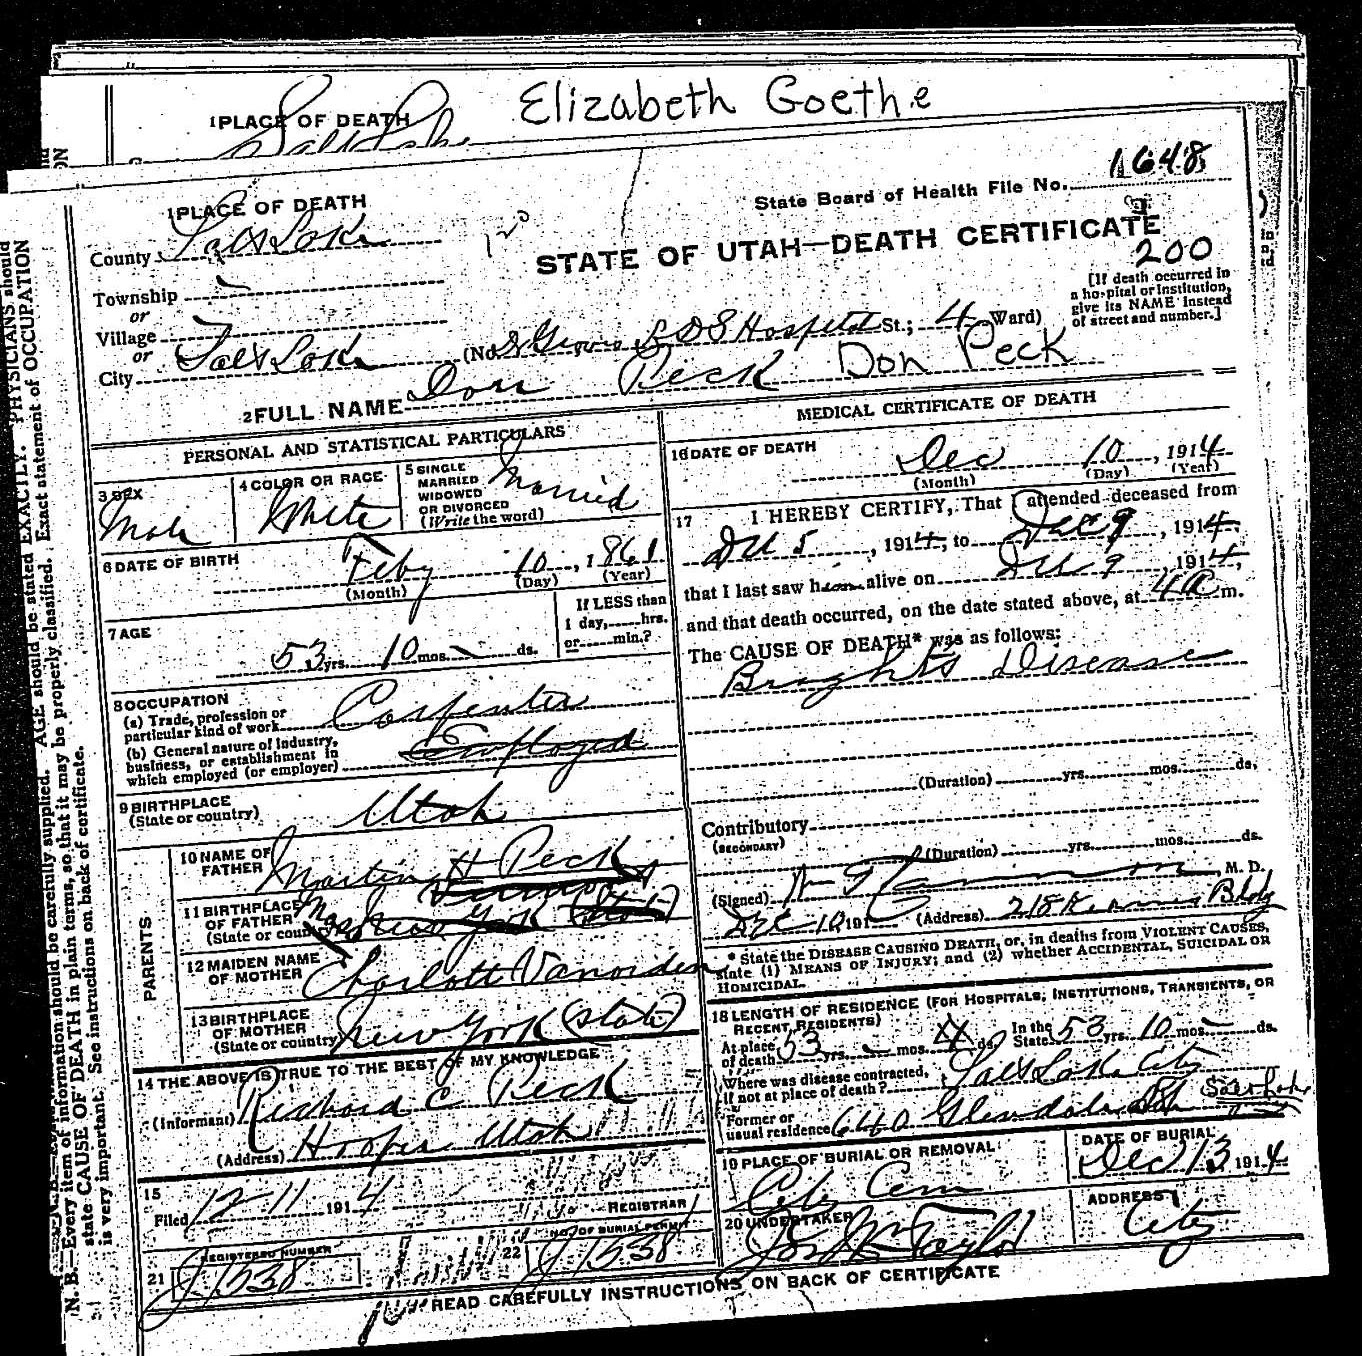 Elizabeth Goethe
1 PLACE OF DEATH
Salt Lake
1648
State Board of Health File No.
1 PLACE OF DEATH
County Salt Lake
120
STATE OF UTAH—DEATH CERTIFICATE
200
Township
or
Village
or
City Salt Lake (No. L D S Hospital St.; 4 Ward)
[If death occurred in a hospital or institution, give its NAME instead of street and number.]
2 FULL NAME Don Peck Don Peck
PERSONAL AND STATISTICAL PARTICULARS
3 SEX Male
4 COLOR OR RACE White
5 SINGLE MARRIED WIDOWED OR DIVORCED (Write the word) Married
6 DATE OF BIRTH Feby 10, 1861
(Month) (Day) (Year)
7 AGE 53 yrs. 10 mos. ds.
If LESS than 1 day, hrs. or min.?
8 OCCUPATION
(a) Trade, profession or particular kind of work Carpenter
(b) General nature of industry, business, or establishment in which employed (or employer) Employed
9 BIRTHPLACE (State or country) Utah
PARENTS
10 NAME OF FATHER Martin H Peck
11 BIRTHPLACE OF FATHER (State or country)
12 MAIDEN NAME OF MOTHER Charlott Vanorden
13 BIRTHPLACE OF MOTHER (State or country) New York (State)
14 THE ABOVE IS TRUE TO THE BEST OF MY KNOWLEDGE
(Informant) Richard C Peck
(Address) Hooper Utah
15
Filed 12-11 1914
REGISTRAR
REGISTERED NUMBER
21 J1538
22 NO. OF BURIAL PERMIT J1538
MEDICAL CERTIFICATE OF DEATH
16 DATE OF DEATH Dec 10, 1914
(Month) (Day) (Year)
17 I HEREBY CERTIFY, That I attended deceased from
Dec 5, 1914, to Dec 9, 1914,
that I last saw him alive on Dec 9, 1914,
and that death occurred, on the date stated above, at 4 a m.
The CAUSE OF DEATH* was as follows:
Brights Disease
(Duration) yrs. mos. ds.
Contributory
(SECONDARY)
(Duration) yrs. mos. ds.
(Signed) M. D.
Dec 10 191 (Address) 218 Kearns Bldg
* State the DISEASE CAUSING DEATH, or, in deaths from VIOLENT CAUSES,
state (1) MEANS OF INJURY; and (2) whether ACCIDENTAL, SUICIDAL OR
HOMICIDAL.
18 LENGTH OF RESIDENCE (FOR HOSPITALS, INSTITUTIONS, TRANSIENTS, OR
RECENT RESIDENTS)
At place of death 53 yrs. mos. ds. In the State 53 yrs. 10 mos. ds.
Where was disease contracted, if not at place of death? Salt Lake City
Former or usual residence 640 Glendale Salt Lake
19 PLACE OF BURIAL OR REMOVAL City Cem
DATE OF BURIAL Dec 13 1914
20 UNDERTAKER Jos Wm Taylor
ADDRESS City
READ CAREFULLY INSTRUCTIONS ON BACK OF CERTIFICATE
N. B.—Every item of information should be carefully supplied. AGE should be stated EXACTLY. PHYSICIANS should
state CAUSE OF DEATH in plain terms, so that it may be properly classified. Exact statement of OCCUPATION
is very important. See instructions on back of certificate.